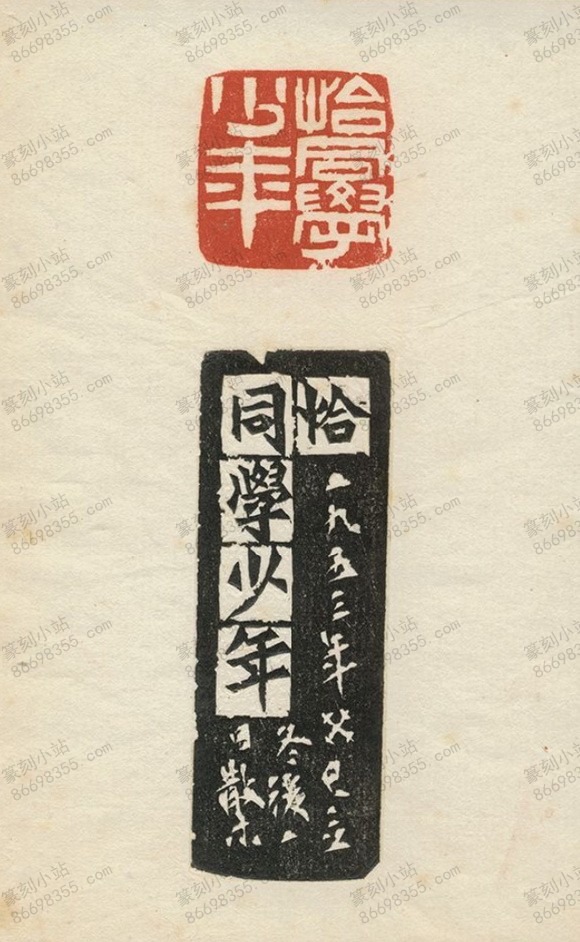 恰同學
少年
恰
同學少年
一九五三年癸巳立
冬後一
日散木
篆刻小站
86698355. com